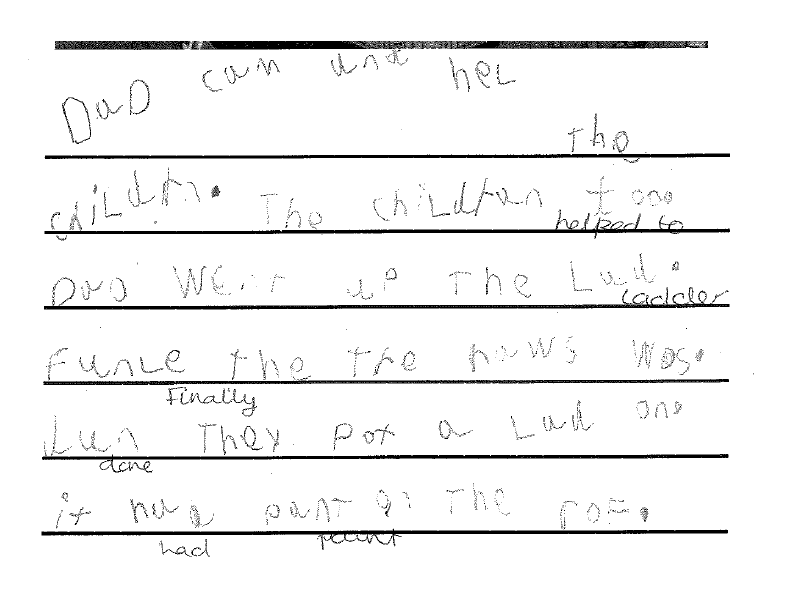 DaD can and heL
The
chiLdrn. The chiLdran t one
helped to
DaD WEnt up The Lad.
Ladder
FunLe the tre haws was.
Finally
dun They pot a Lad one
done
it had pant on The rof.
had paint